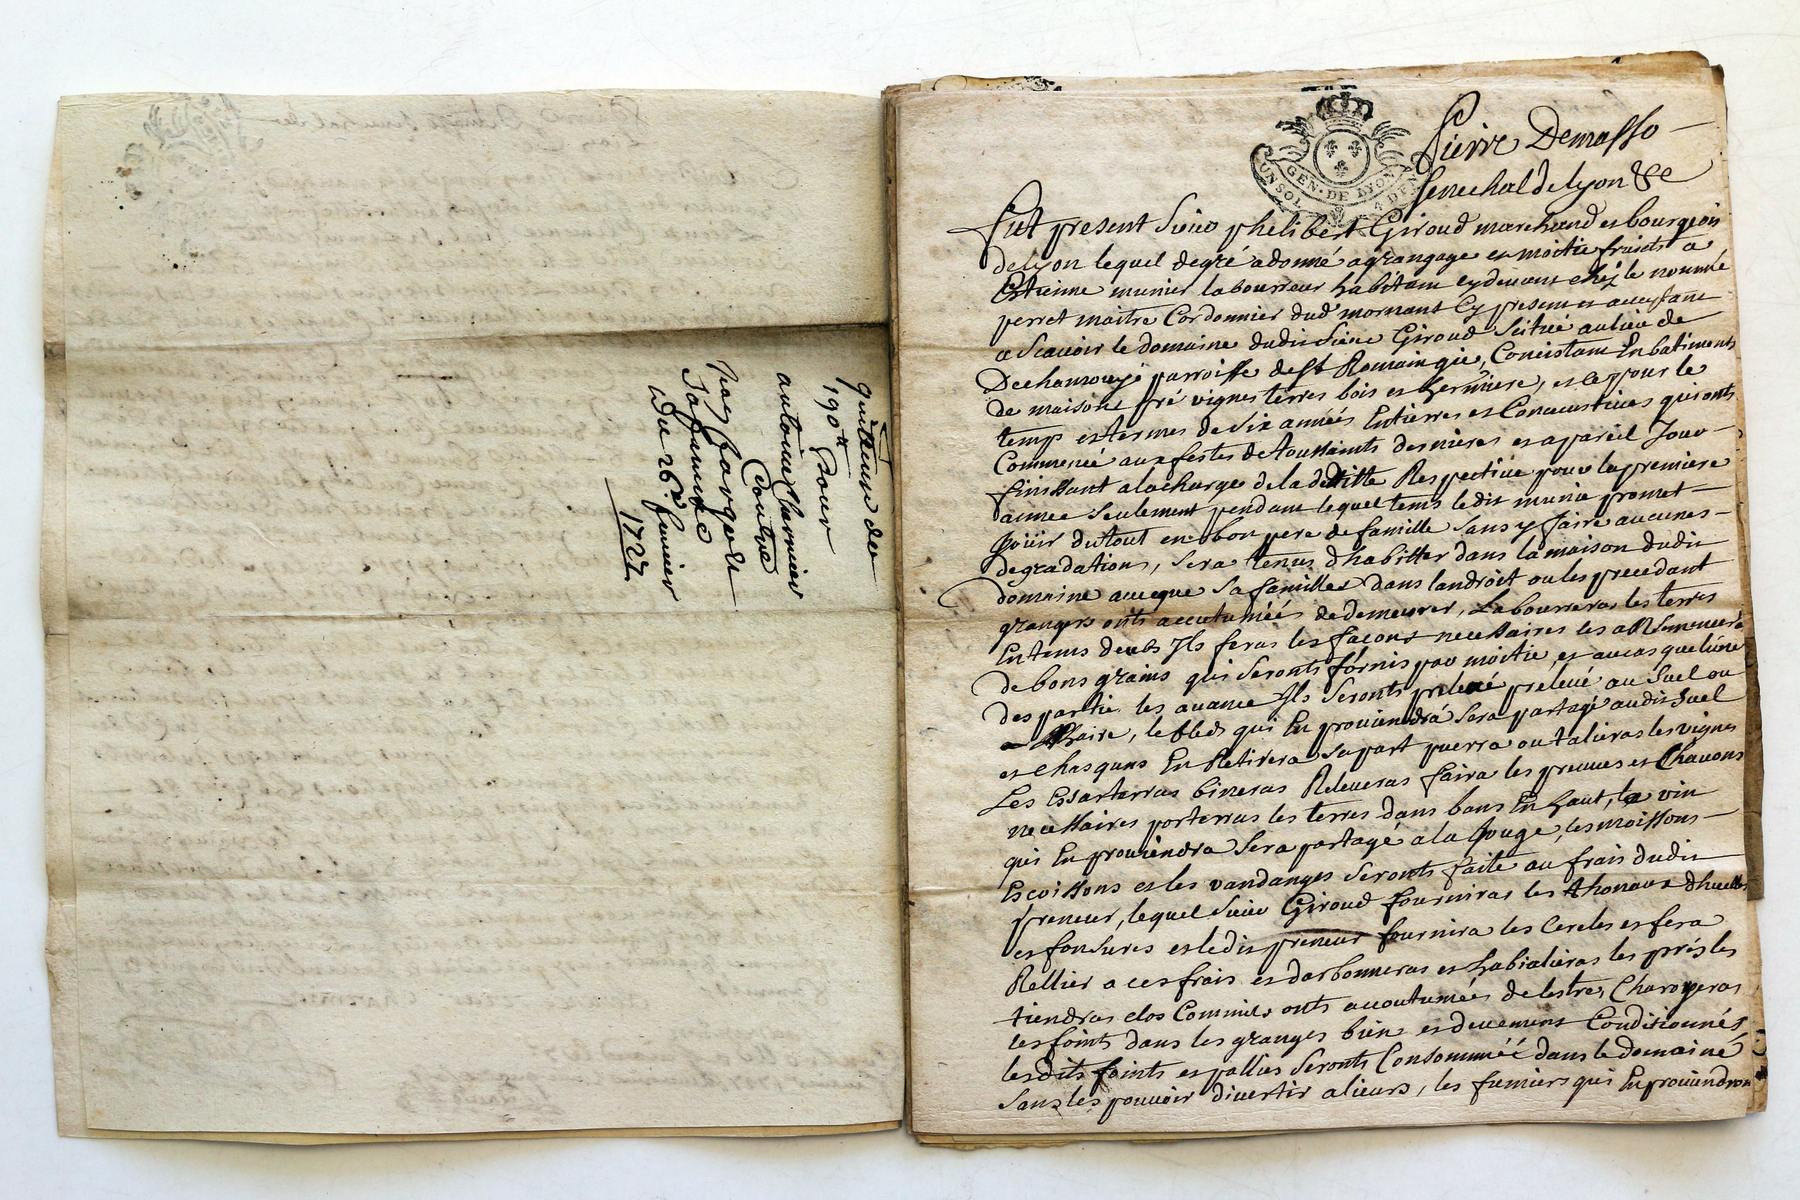 quittance de
190ᵗᵗ pour
antoine charmier
Contre
sa femme
Du 26e feurier
1727
GEN · DE LYON
UN SOL 4 DEN
Pierre Demasso
senechal de lyon &c
Fut present Sieur phelibert Giroud marchand et bourgeois
de lyon lequel de gré a donné a grangage et moitie fruits a
Estienne munier laboureur habitant cy devant chez le nommé
perret maitre Cordonnier dud mornant Cy present et acceptant
a Scauoir le domaine dudit Sieur Giroud Scitué au lieu de
Dechanouayé parroisse de st Romain gié, Concistant En batiments
de maisons pré vignes terres bois et hermiere, et ce pour le
temps et termes de six années Entierres et Consecutiues qui onts
Commencé aux festes de toussaints dernieres et a pareil Jour
finissant a la charge de la ditte Respectiue pour la premiere
année Seulement pendant lequel tems ledit munie promet
Joüir du tout en bon pere de famille Sans y faire aucunes
degradations, Sera tenus dhabitter dans la maison dudit
domaine auecque Sa famille dans landroit ou les precedant
grangers onts accutumées de demeurer, Labourreras les terres
En tems deubs Ils feras les façons necessaires les
de bons grains qui Seronts fornis par moitie, et au cas que lune
des partie les auance Ils Seronts preleué au Suel ou
a Lhaire, le bled qui En prouiendrá Sera partagé audit Suel
et chasquns En Retirera Sa part puerra ou taliéras les vignes
Les Essarterras bineras Releueras faira les preuues et Chauons
necessaires porterras les terres dans bas En haut, le vin
qui En prouiendra Sera partagé a la Jouge, les moissons
Escoissons et les vandanges Seronts faite au frais dudit
preneur, lequel Sieur Giroud fourniras les thonaux
et fonsures et ledit preneur fournira les Cercles et fera
Rellier a ces frais et darbonneras et habialieras les prés les
tiendras clos Comme onts accoutumées de lestre, Charoyeras
les foints dans les granges bien et deuement Conditionnés
lesdits foints et pallies Seronts Consommée dans le domainé
Sans les pouuoir diuertir alieurs, les fumiers qui En prouiendront